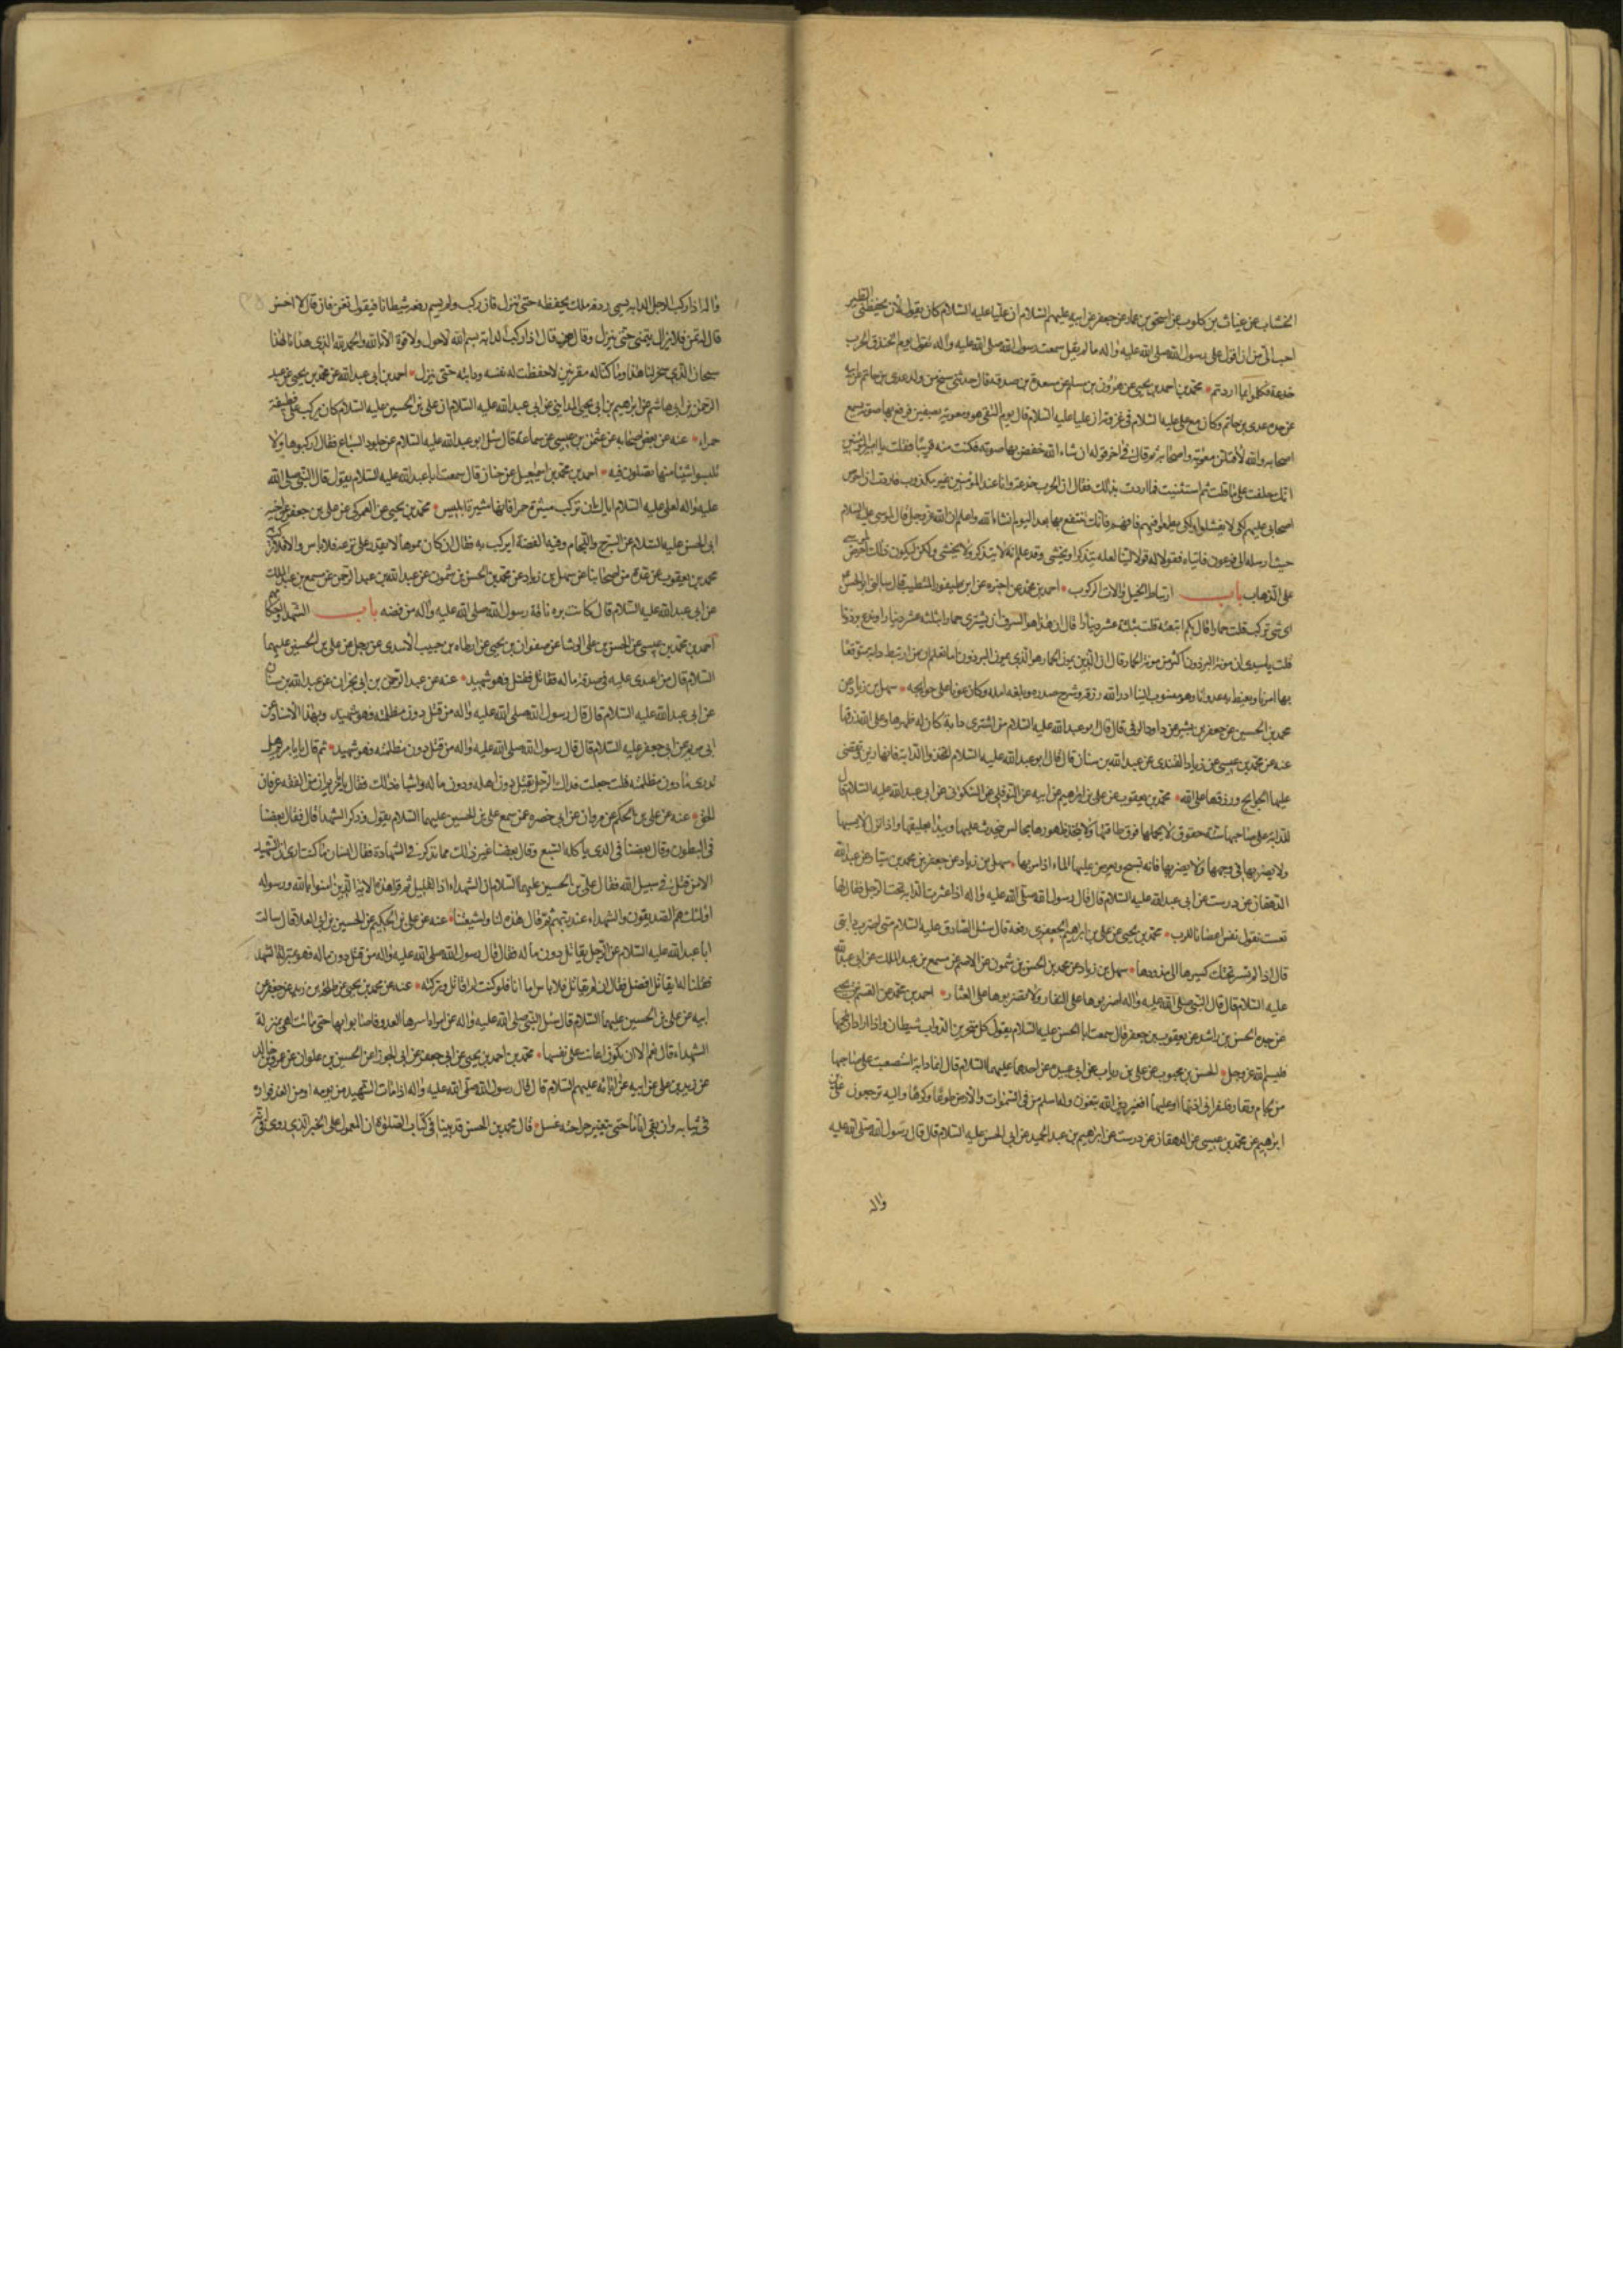 الخشاب عن غياث بن كلوب عن اسحق بن عمار عن جعفر عن ابيه عليهم السلام ان عليا عليه السلام كان يقول لان يخطفنى الطير
احب الى من ان اقول على رسول الله صلى الله عليه واله ما لم يقل سمعت رسول الله صلى الله عليه واله يقول يوم الخندق الحرب
خدعة فتكلموا بما اردتم محمد بن احمد بن يحيى عن هرون بن مسلم عن مسعدة بن صدقة قال حدثنى شيخ من ولد عدى بن حاتم عن ابيه
عن جده عدى بن حاتم وكان مع على عليه السلام فى غزوته ان عليا عليه السلام قال يوم التقى هو ومعوية بصفين فرفع بها صوته يسمع
اصحابه والله لاقتلن معوية واصحابه ثم قال فى اخر قوله ان شاء الله خفض بها صوته فكنت منه قريبا فقلت يا امير المؤمنين
انك حلفت على ما قلت ثم استثنيت فما اردت بذلك فقال ان الحرب خدعة وانا عند المؤمنين غير مكذوب فاردت ان احرض
اصحابى عليهم كى لا يفشلوا ولكى يطمعوا فيهم فافهم فانك تنتفع بها بعد اليوم انشاء الله واعلم ان الله عز وجل قال لموسى عليه السلام
حيث ارسله الى فرعون فاتياه فقولا له قولا لينا لعله يتذكر او يخشى وقد علم انه لا يتذكر ولا يخشى ولكن ليكون ذلك احرص لموسى
على الذهاب باب ارتباط الخيل والات الركوب احمد بن محمد عن اخبره عن ابن طيفور المتطبب قال سالنى ابو الحسن
اى شئ تركب قلت حمارا قال بكم ابتعته قلت بثلثة عشر دينارا قال ان هذا هو السرف ان يشترى حمارا بثلثة عشر دينارا وتدع برذونا
قلت يا سيدى ان مونة البرذون اكثر من مونة الحمار قال ان الذى يمون الحمار هو الذى يمون البرذون اما تعلم ان من ارتبط دابة متوقعا
بها امرنا ويغيظ به عدونا وهو منسوب الينا ادر الله رزقه وشرح صدره وبلغه امله وكان عونا على حوايجه سهل بن زياد عن
محمد بن الحسين عن جعفر بن بشير عن داود الرقى قال قال ابو عبد الله عليه السلام من اشترى دابة كان له ظهرها وعلى الله رزقها
عنه عن محمد بن عيسى عن زياد القندى عن عبد الله بن سنان قال قال ابو عبد الله عليه السلام اتخذوا الدابة فانها زين وتقضى
عليها الحوايج ورزقها على الله محمد بن يعقوب عن على بن ابراهيم عن ابيه عن النوفلى عن السكونى عن ابى عبد الله عليه السلام قال
للدابة على صاحبها ستة حقوق لا يحملها فوق طاقتها ولا يتخذ ظهورها مجالس يتحدث عليها ويبدا بعلفها اذا نزل ولا يسمها
ولا يضربها فى وجهها ولا يضربها فانها تسبح ويعرض عليها الماء اذا مر بها سهل بن زياد عن جعفر بن محمد بن يسار عن عبيد الله
الدهقان عن درست عن ابى عبد الله عليه السلام قال قال رسول الله صلى الله عليه واله اذا عثرت الدابة تحت الرجل فقال لها
تعست تقول تعس اعصانا للرب محمد بن يحيى عن على بن ابراهيم الجعفرى رفعه قال سئل الصادق عليه السلام متى اضرب دابتى
قال اذا لم تسر تحتك كسيرها الى مذودها سهل بن زياد عن محمد بن الحسن بن شمون عن الاصم عن مسمع بن عبد الملك عن ابى عبد الله
عليه السلام قال قال النبى صلى الله عليه واله اضربوها على النفار ولا تضربوها على العثار احمد بن محمد عن القسم بن يحيى
عن جده الحسن بن راشد عن يعقوب بن جعفر قال سمعت ابا الحسن عليه السلام يقول كل منخر من الدواب شيطان واذا اراد ان يلجمها
فليسم الله عز وجل الحسن بن محبوب عن على بن رياب عن ابى عبيدة عن احدهما عليهما السلام قال ايما دابة استصعبت على صاحبها
من لجام ونفار فليقرا فى اذنها او عليها افغير دين الله يبغون وله اسلم من فى السموات والارض طوعا وكرها واليه ترجعون على بن
ابراهيم عن محمد بن عيسى عن الدهقان عن درست عن ابراهيم بن عبد الحميد عن ابى الحسن عليه السلام قال قال رسول الله صلى الله عليه
واله
واله اذا ركب الرجل الدابة يسمى ردفه ملك يحفظه حتى ينزل فان ركب ولم يسم ردفه شيطانا فيقول تغن فان قال لا احسن
قال له تمن فلا يزال يتمنى حتى ينزل وقال من قال اذا ركب الدابة بسم الله لا حول ولا قوة الا بالله والحمد لله الذى هدانا لهذا
سبحان الذى سخر لنا هذا وما كنا له مقرنين الا حفظت له نفسه ودابته حتى ينزل احمد بن ابى عبد الله عن محمد بن يحيى عن عبد
الرحمن بن ابى هاشم عن ابراهيم بن ابى يحيى المداينى عن ابى عبد الله عليه السلام ان على بن الحسين عليه السلام كان يركب على قطيفة
حمراء عنه عن بعض اصحابه عن عثمن بن عيسى عن سماعة قال سئل ابو عبد الله عليه السلام عن جلود السباع فقال اركبوها ولا
تلبسوا شيئا منها تصلون فيه احمد بن محمد بن اسمعيل عن حنان قال سمعت ابا عبد الله عليه السلام يقول قال النبى صلى الله
عليه واله لعلى عليه السلام اياك ان تركب ميثرة حمرا فانها ميثرة ابليس محمد بن يحيى عن العمركى عن على بن جعفر عن اخيه
ابى الحسن عليه السلام عن السرج واللجام وفيه الفضة ايركب به فقال ان كان مموها لا يقدر على نزعه فلا باس والا فلا تركب به
محمد بن يعقوب عن عدة من اصحابنا عن سهل بن زياد عن محمد بن الحسن بن شمون عن عبد الله بن عبد الرحمن عن مسمع بن عبد الملك
عن ابى عبد الله عليه السلام قال كانت برة ناقة رسول الله صلى الله عليه واله من فضه باب الشهدا واحكامهم
احمد بن محمد بن عيسى عن الحسن بن على الوشا عن صفوان بن يحيى عن ارطاه بن حبيب الاسدى عن رجل عن على بن الحسين عليهما
السلام قال من اعتدى عليه فى صدقة ماله فقاتل فقتل فهو شهيد عنه عن عبد الرحمن بن ابى نجران عن عبد الله بن سنان
عن ابى عبد الله عليه السلام قال قال رسول الله صلى الله عليه واله من قتل دون مظلمته فهو شهيد وبهذا الاسناد عن
ابى مريم عن ابى جعفر عليه السلام قال قال رسول الله صلى الله عليه واله من قتل دون مظلمته فهو شهيد ثم قال يا با مريم هل
تدرى ما دون مظلمته قلت جعلت فداك الرجل يقتل دون اهله ودون ماله واشباه ذلك فقال يا با مريم ان من الفقه عرفان
الحق عنه عن على بن الحكم عن مروان عن ابى خضره عمن سمع على بن الحسين عليهما السلام يقول وذكر الشهدا قال فقال بعضنا
فى المبطون وقال بعضنا فى الذى ياكله السبع وقال بعضنا غير ذلك مما يذكر فى الشهادة فقال انسان ما كنت ارى ان الشهيد
الا من قتل فى سبيل الله فقال على بن الحسين عليهما السلام ان الشهداء اذا لقليل ثم قرا هذه الاية الذين امنوا بالله ورسوله
اولئك هم الصديقون والشهداء عند ربهم ثم قال هذه لنا ولشيعتنا عنه عن على بن الحكم عن الحسين بن ابى العلا قال سالت
ابا عبد الله عليه السلام عن الرجل يقاتل دون ماله فقال قال رسول الله صلى الله عليه واله من قتل دون ماله فهو بمنزلة الشهيد
فقلنا له ايقاتل افضل فقال ان لم يقاتل فلا باس اما انا فلو كنت لم اقاتل وتركته عنه عن محمد بن يحيى عن طلحة بن زيد عن جعفر عن
ابيه عن على بن الحسين عليهما السلام قال سئل النبى صلى الله عليه واله عن امراة اسرها العدو فاصابوا بها حتى ماتت اهى بمنزلة
الشهداء قال نعم الا ان تكون اعانت على نفسها محمد بن احمد بن يحيى عن ابى جعفر عن ابى الجوزا عن الحسين بن علوان عن عمرو بن خالد
عن زيد بن على عن ابيه عن ابائه عليهم السلام قال قال رسول الله صلى الله عليه واله اذا مات الشهيد من يومه او من الغد فواروه
فى ثيابه وان بقى اياما حتى يتغير جراحته غسل قال محمد بن الحسن قد بينا فى كتاب الصلوة ان المعمول على الخبر الذى روى